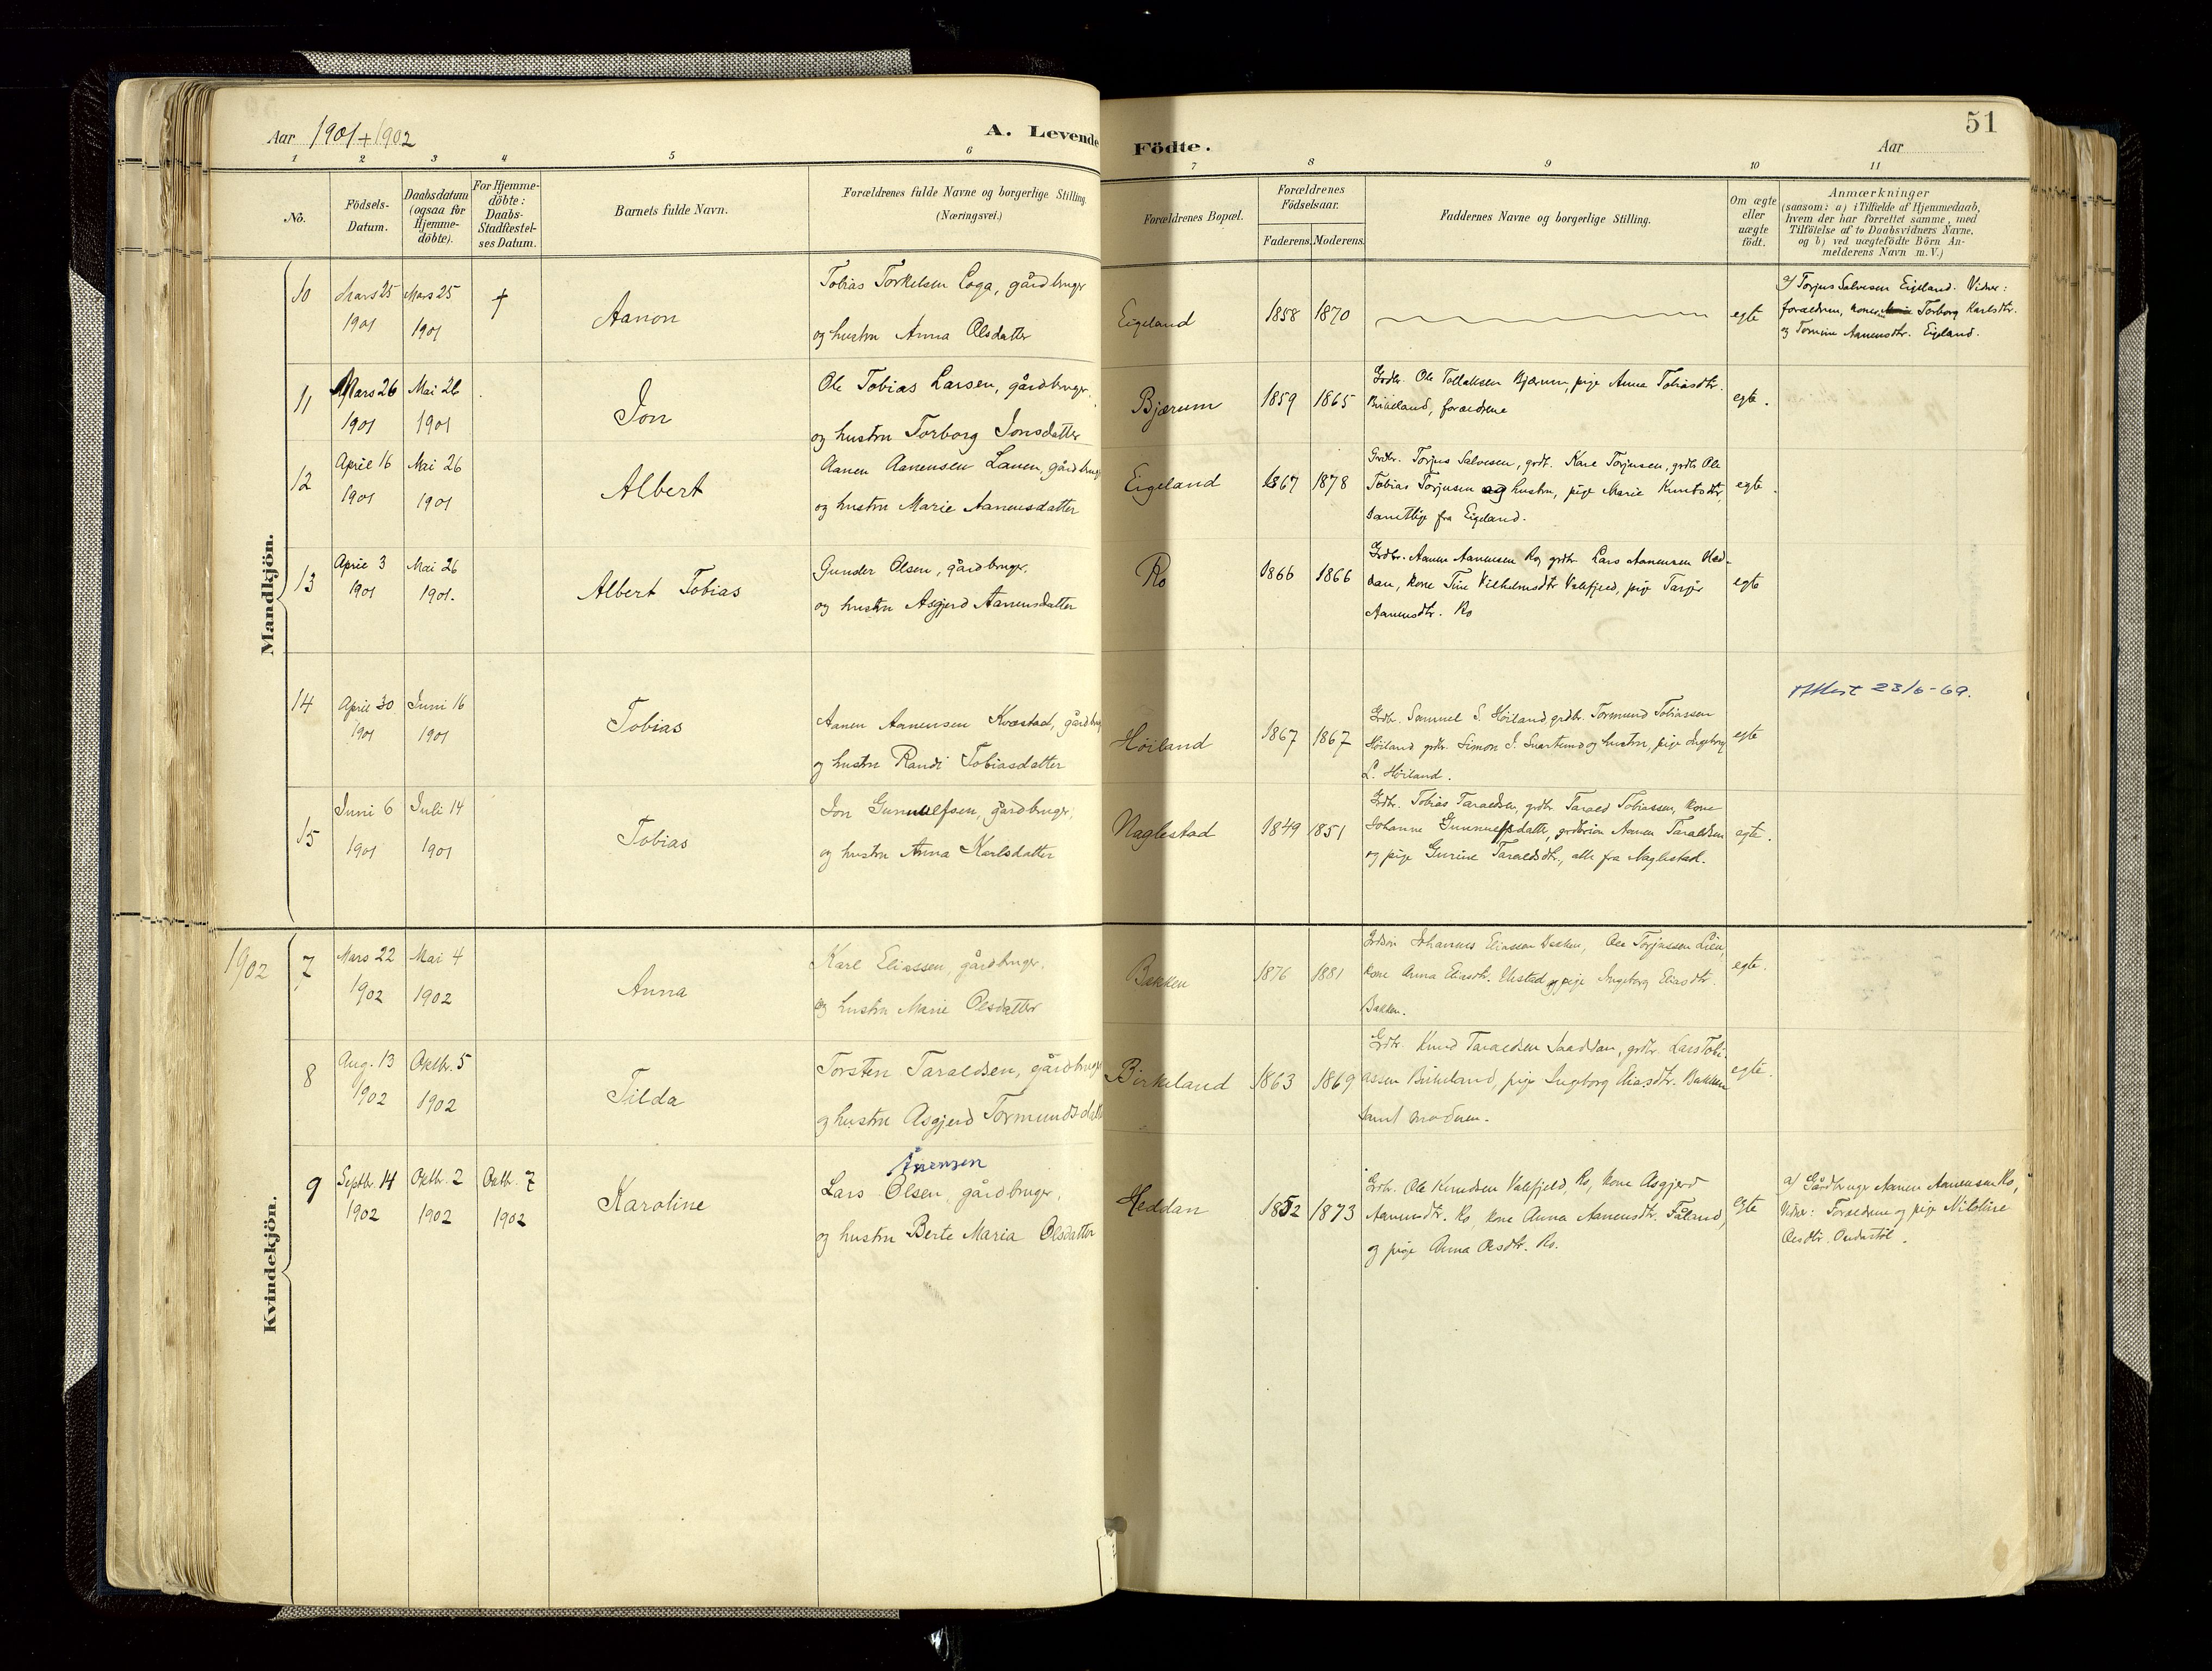 51
Aar 1901+1902
A. Levende Födte.
Aar
1 2 3 4 5 6 7 8 9 10 11
No.
Födsels-
Datum.
Daabsdatum
(ogsaa for
Hjemme-
döbte).
For Hjemme-
döbte:
Daabs-
Stadfæstel-
ses Datum.
Barnets fulde Navn.
Forældrenes fulde Navne og borgerlige Stilling
(Næringsvei.)
Forældrenes Bopæl.
Forældrenes
Födselsaar.
Faderens. Moderens.
Faddernes Navne og borgerlige Stilling.
Om ægte
eller
uægte
födt.
Anmærkninger
(saasom: a) i Tilfælde af Hjemmedaab,
hvem der har forrettet samme, med
Tilföielse af to Daabsvidners Navne.
og b) ved uægtefödte Börn An-
melderens Navn m. V.)
Mandkjön.
10
Mars 25
1901
Mars 25
1901
+
Aanon
Tobias Torkelsen Loga, gårdbruger
og hustru Anna Olsdatter
Eigeland
1858 1870
egte
a) Torjus Salvesen Eigeland. Vidner:
forældrene, kone Torborg Karlsdtr.
og Tomine Aanensdtr. Eigeland.
11
Mars 26
1901
Mai 26
1901
Jon
Ole Tobias Larsen, gårdbruger.
og hustru Torborg Jonsdatter
Bjærum
1859 1865
Grdbr. Ole Tollaksen Bjærum, pige Anna Tobiasdtr.
Birkeland, forældrene
egte.
12
April 16
1901
Mai 26
1901
Albert
Aanen Aanensen Lauen, gårdbrug
og hustru Marie Aanensdatter
Eigeland
1867 1878
Grdbr. Torjus Salvesen, grdf. Kare Torjusen, grdbr Ole
Tobias Torjusen og hustru, pige Marie Knutsdtr,
samtlige fra Eigeland.
egte.
13
April 3
1901
Mai 26
1901.
Albert Tobias
Gunder Olsen, gårdbruger.
og hustru Asgjerd Aanensdatter
Ro
1866 1866
Grdbr. Aanen Aanensen Ro, grdbr. Lars Aanensen Hed-
dan, kone Tine Vilhelmsdtr Valefjeld, pige Tarjer
Aanensdtr. Ro
egte
14
April 30
1901
Juni 16
1901
Tobias
Aanen Aanensen Kvæstad, gårdbrug
og hustru Randi Tobiasdatter
Høiland
1867 1867
Grdbr. Samuel S. Høiland grdbr. Tormund Tobiassen
Høiland grdbr. Simon I. Svartemo og hustru, pige Ingeborg
L. Høiland.
egte
Attest 23/6-69.
15
Juni 6
1901
Juli 14
1901
Tobias
Jon Gunnulfsen, gårdbruger,
og hustru Anna Karlsdatter
Naglestad
1849 1851
Grdbr. Tobias Taraldsen, grdbr. Tarald Tobiassen, kone
Johanne Gunnulfsdatter, grdbrsøn Aanen Taraldsen
og pige Gurine Taraldsdtr., alle fra Naglestad.
egte.
1902
Kvindekjön.
7
Mars 22
1902
Mai 4
1902
Anna
Karl Eliassen, gårdbruger.
og hustru Marie Olsdatter
Bakken
1876 1881
Grdsøn Johannes Eliassen Bakken, Ole Torjussen Lien,
kone Anna Eliasdtr. Ubstad og pige Ingeborg Eliasdtr.
Bakken.
egte.
8
Aug. 13
1902
Oktbr. 5
1902
Tilda
Torsten Taraldsen, gårdbruger
og hustru Asgjerd Tormundsdatt
Birkeland
1863 1869
Grdbr. Knud Taraldsen Saaddan, grdbr. Lars Tobi-
assen Birkeland, pige Ingeborg Eliasdtr. Bakken
samt moderen.
egte.
9
Septbr. 14
1902
Oktbr. 2
1902
Oktbr. 7
1902
Karoline
Ånensen
Lars Olsen, gårdbruger,
og hustru Berte Maria Olsdatter
Heddan
1852 1873
Grdbr. Ole Knudsen Valefjeld, Ro, kone Asgjerd
Aanensdtr. Ro, kone Anna Aanensdtr. Faland,
og pige Anna Olsdtr. Ro.
egte
a) Gårdbruger Aanen Aanensen Ro,
Vidner: Forældrene og pige Nikoline
Olesdtr.